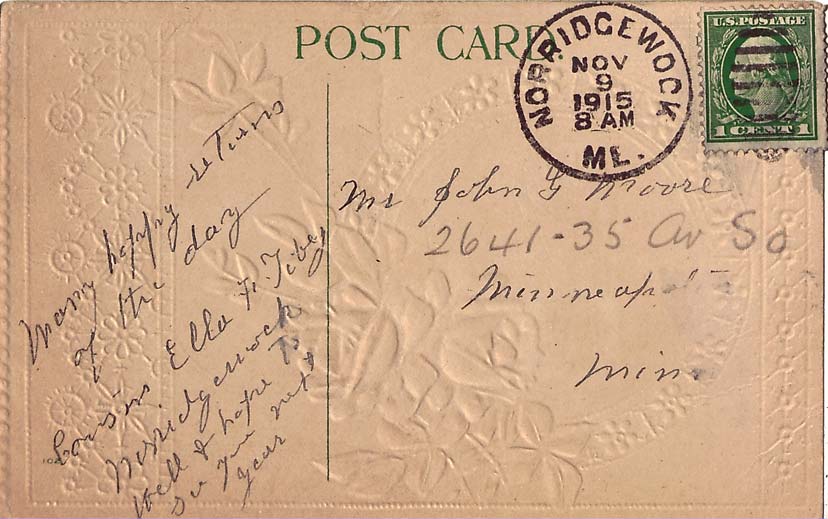 POST CARD
NORRIDGEWOCK
NOV
9
1915
8 AM
ME.
U.S. POSTAGE
1 CENT 1
Mr John G Moore
2641-35 Av So
Minneapol
Minn
Many happy returns
of the day
Cousins Ella F. Tibey
Norridgewock
Well & hope to
see you next
year